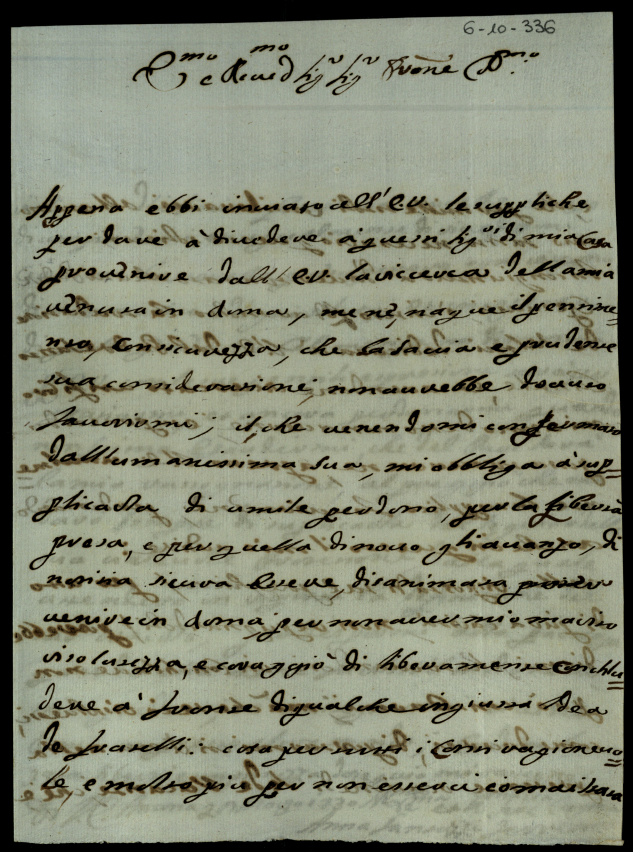 6-10-336
E.mo e Rev.d Sig.r Sig.r Prone P.mo
Appena ebbi inviato all' E.V. le suppliche
per dare à divedere à questi Sig.ri di mia Casa
provenire dall' E.V. la ricerca della mia
venuta in Roma, me ne, naque il pentime,
nto, con sicurezza, che la savia e prudente
sua considerazione, non avrebbe, dovuto
favorirmi; il che venendomi confermato
dall'umanissima Sua, mi obbliga à sup=
plicarla di umile perdono, per la libertà
presa, e per quella di novo, gli avanzo, di
notizia sicura essere, disanimata poter
venire in Roma, per non aver mio marito
risolutezza, e coraggiò di liberamente conchiu
dere à fronte di qualche ingiusta Idea
de fratelli: cosa per tutti i, Conti ragionevo=
le, e molto più per non esserci comai stata